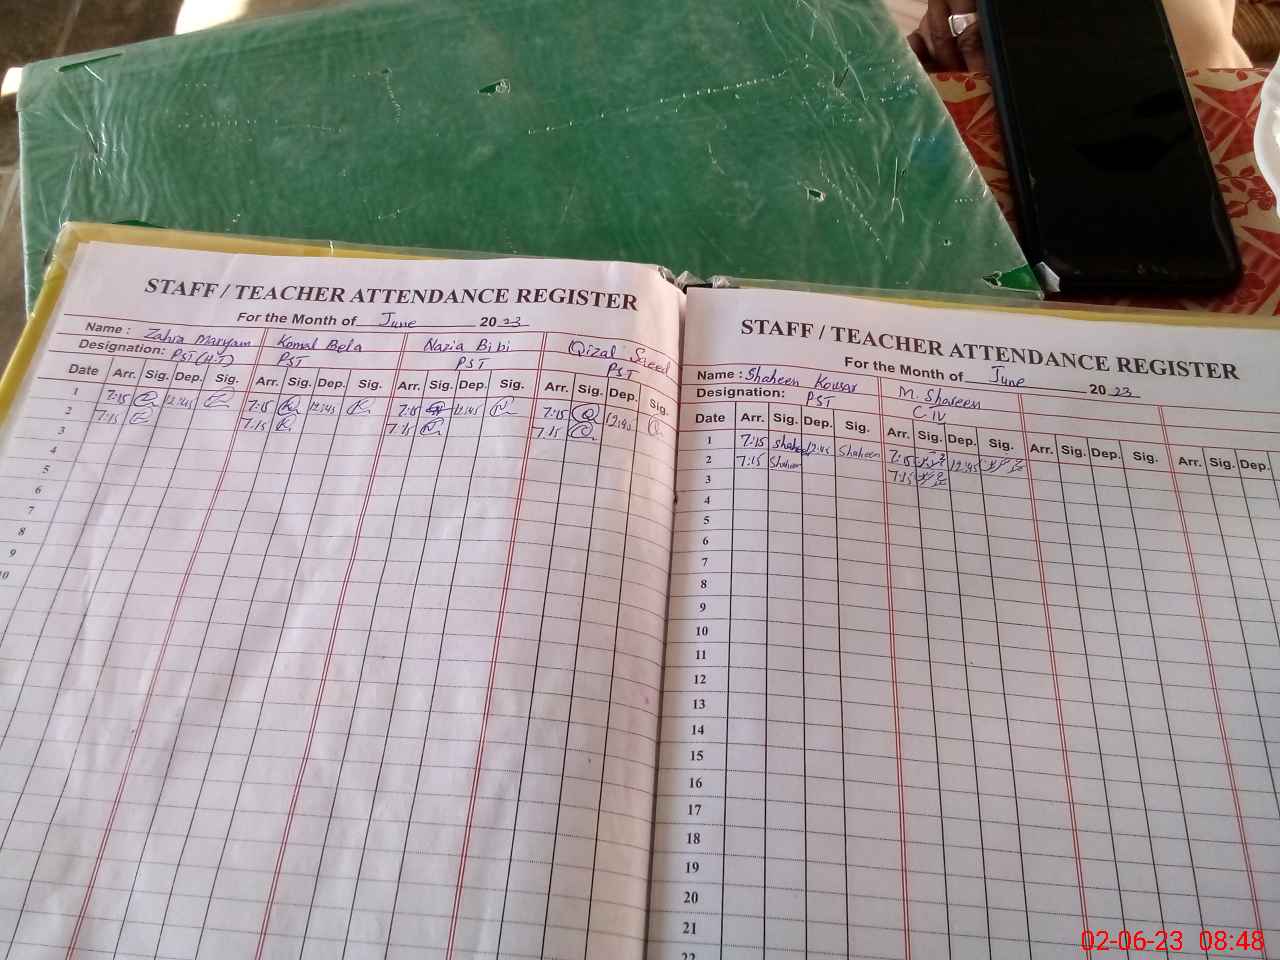 STAFF / TEACHER ATTENDANCE REGISTER
For the Month of June 2023
Name: Zahra Maryam Komal Bela Nazia Bibi Qizal Saeed
Designation: PST (H.T) PST PST PST
Date Arr. Sig. Dep. Sig. Arr. Sig. Dep. Sig. Arr. Sig. Dep. Sig. Arr. Sig. Dep. Sig.
1 7:15 12:45 7:15 12:45 7:15 12:45 7:15 12:45
2 7:15 7:15 7:15 7:15
3
4
5
6
7
8
9
10
STAFF / TEACHER ATTENDANCE REGISTER
For the Month of June 2023
Name: Shaheen Kousar M. Shaheen
Designation: PST C. IV
Date Arr. Sig. Dep. Sig. Arr. Sig. Dep. Sig. Arr. Sig. Dep. Sig. Arr. Sig. Dep.
1 7:15 Shaheen 12:45 Shaheen 7:15 12:45
2 7:15 Shaheen 7:15
3
4
5
6
7
8
9
10
11
12
13
14
15
16
17
18
19
20
21
22
02-06-23 08:48